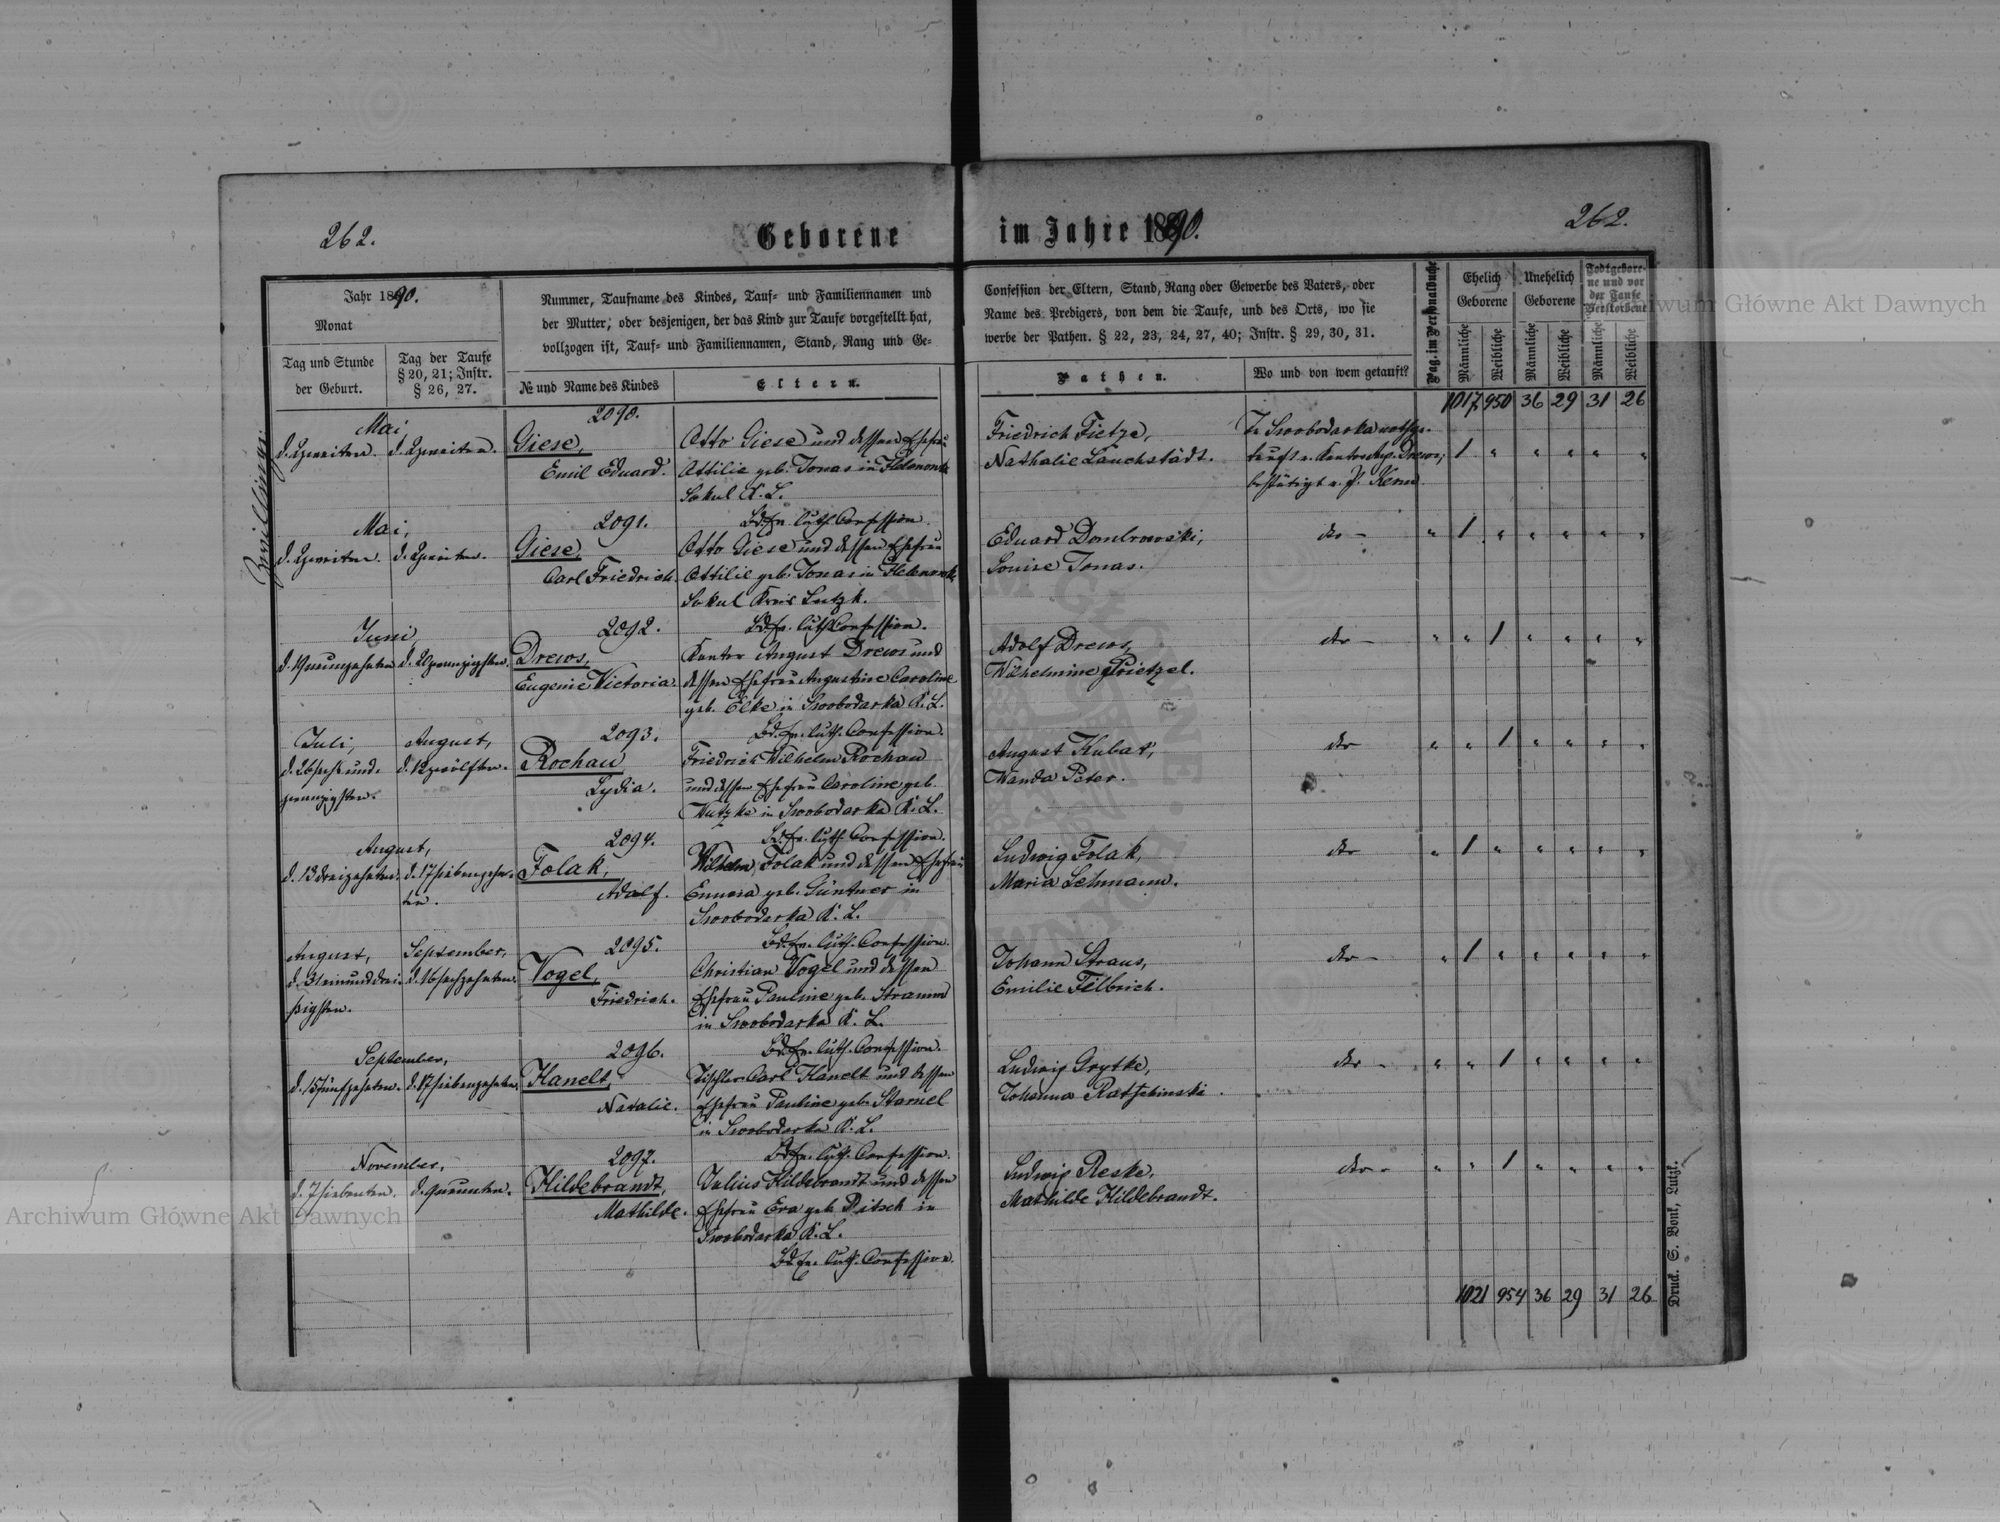 262.
Geborene
im Jahre 1890.
262.
Jahr 1890.
Monat
Tag und Stunde
der Geburt.
Tag der Taufe
§ 20, 21; Instr.
§ 26, 27.
Nummer, Taufname des Kindes, Tauf- und Familiennamen und
der Mutter, oder desjenigen, der das Kind zur Taufe vorgestellt hat,
vollzogen ist, Tauf- und Familiennamen, Stand, Rang und Ge-
№ und Name des Kindes
Eltern.
Confession der Eltern, Stand, Rang oder Gewerbe des Vaters, oder
Name des Predigers, von dem die Taufe, und des Orts, wo sie
werbe der Pathen. § 22, 23, 24, 27, 40; Instr. § 29, 30, 31.
Pathen.
Wo und von wem getauft?
Pag. im Personalbuche
Ehelich
Geborene
Unehelich
Geborene
Todtgebore-
ne und vor
der Taufe
Verstorbene
Männliche
Weibliche
Männliche
Weibliche
Männliche
Weibliche
1017 950 36 29 31 26
Zwillinge.
Mai,
d. 2 zweiten. d. 2 zweiten.
2090.
Giese,
Emil Eduard.
Otto Giese und dessen Ehefrau
Ottilie geb. Jonas in Helenowk
Sokul K. L.
Bd. ev. luth. Confession.
Friedrich Fietze,
Nathalie Lauchstädt.
In Swobodarka nothge-
tauft v. Kantor Aug. Drews;
bestätigt v. P. Kern
1 " " " " "
Mai,
d. 2 zweiten. d. 2 zweiten.
2091.
Giese,
Carl Friedrich.
Otto Giese und dessen Ehefrau
Ottilie geb. Jonas in Helenowk
Sokul Kreis Lutzk.
Bd. ev. luth. Confession.
Eduard Dombrowski,
Louise Jonas.
dto -
" 1 " " " " "
Juni,
d. 19 neunzehnten d. 20 zwanzigsten.
2092.
Drews,
Eugenie Victoria.
Kantor August Drews und
dessen Ehefrau Augustine Caroline
geb. Elke in Swobodarka K. L.
Bd. ev. luth. Confession.
Adolf Drews,
Wilhelmine Prietzel.
dto -
" " 1 " " " "
Juli,
d. 26 sechsund-
zwanzigsten.
August,
d. 12 zwölften.
2093.
Rochau
Lydia.
Friedrich Wilhelm Rochau
und dessen Ehefrau Caroline geb.
Wutzke in Swobodarka K. L.
Bd. ev. luth. Confession.
August Kubat,
Wanda Peter.
dto
" " 1 " " " "
August,
d. 13 dreizehnten. d. 17 siebenzehn-
ten.
2094.
Folak,
Adolf.
Wilhelm Folak und dessen Ehefrau
geb. Güntner in
Swobodarka K. L.
Bd. ev. luth. Confession.
Ludwig Folak,
Maria Lehmann.
dto
" 1 " " " " "
August,
d. 31 einunddrei-
ßigsten.
September,
d. 16 sechzehnten.
2095.
Vogel,
Friedrich.
Christian Vogel und dessen
Ehefrau Pauline geb. Stramm
in Swobodarka K. L.
Bd. ev. luth. Confession.
Johann Straus,
Emilie Filbrich.
dto -
" 1 " " " " "
September,
d. 15 fünfzehnten. d. 17 siebenzehnten.
2096.
Hanelt,
Natalie.
Tischler Carl Hanelt und dessen
Ehefrau Pauline geb. Stamel
in Swobodarka K. L.
Bd. ev. luth. Confession.
Ludwig Grytke,
Johanna Ratschinski.
dto -
" " 1 " " " "
November,
d. 7 siebenten. d. 9 neunten.
2097.
Hildebrandt,
Mathilde.
Julius Hildebrandt und dessen
Ehefrau Eva geb. Ditsch in
Swobodarka K. L.
Bd. ev. luth. Confession.
Ludwig Reske,
Mathilde Hildebrandt.
dto -
" " 1 " " " "
1021 954 36 29 31 26
Druck. S. Bonk, Lutzk.
Archiwum Główne Akt Dawnych
Archiwum Główne Akt Dawnych